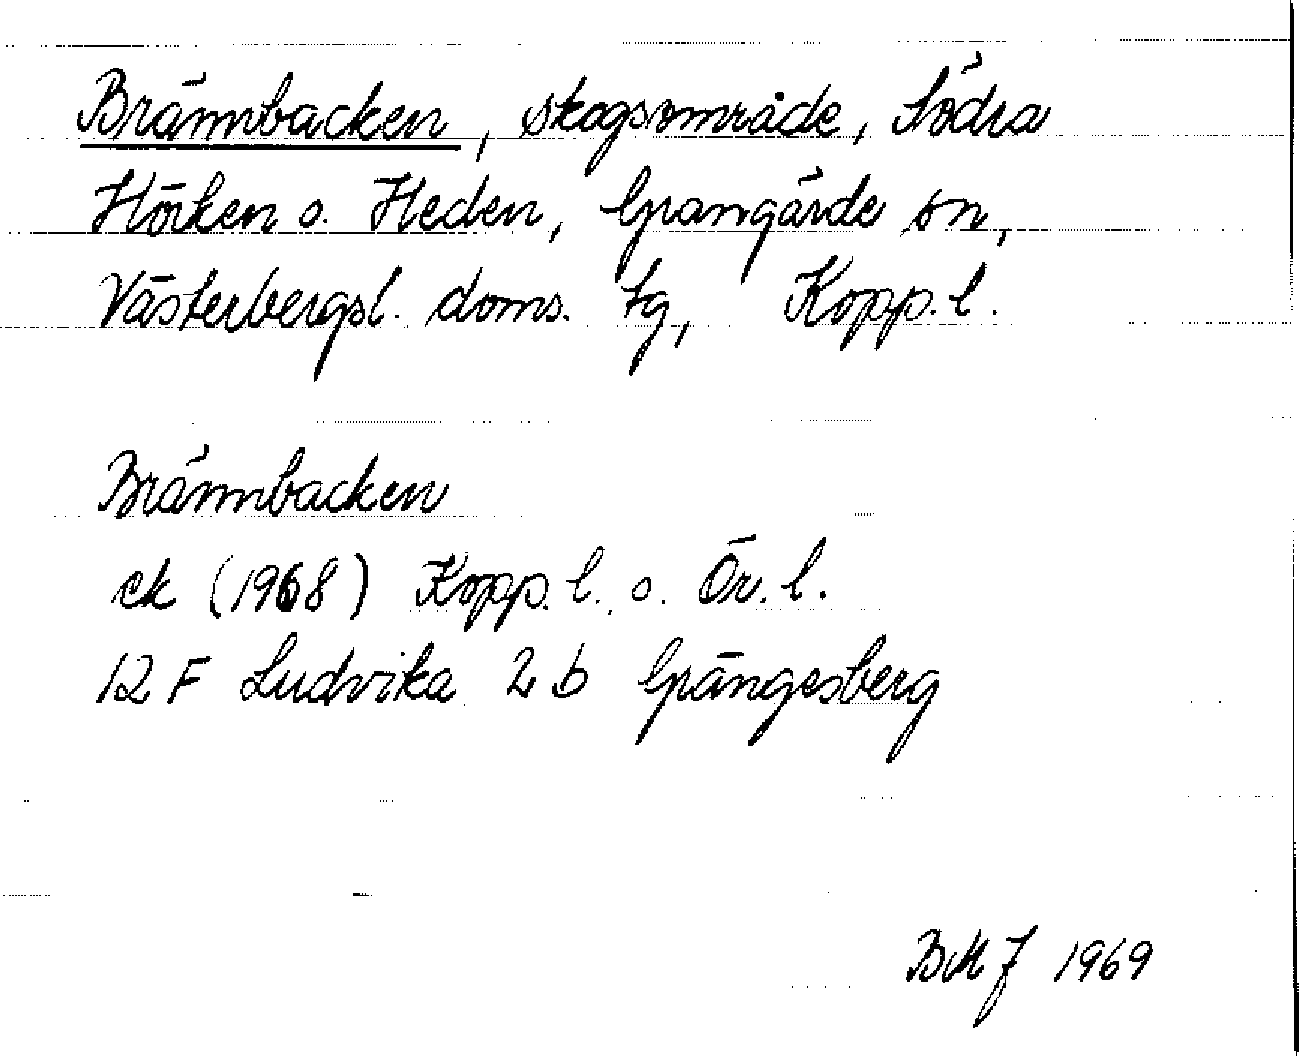 Brännbacken, skogsområde, Södra
Hörken o. Heden, Grangärde sn,
Västerbergsl. doms. tg, Kopp. l.
Brännbacken
ek (1968) Kopp. l. o. Ör. l.
12 F Ludvika 2 b Grängesberg
BMJ 1969